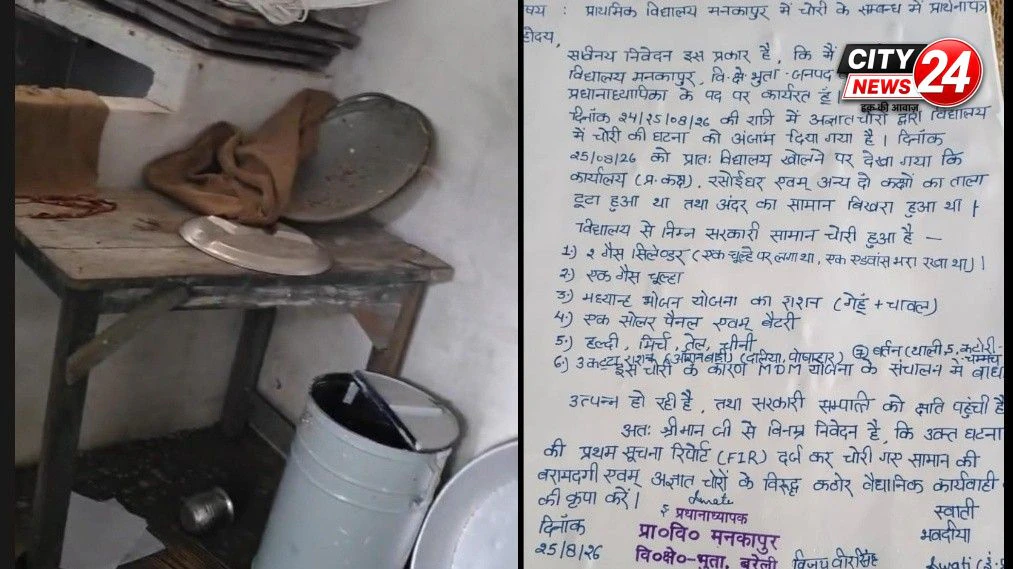 षय : प्राथमिक विद्यालय मनकापुर में चोरी के सम्बन्ध में प्रार्थनापत्र
होदय,
सविनय निवेदन इस प्रकार है, कि मैं
विद्यालय मनकापुर, वि.क्षे-भुता-जनपद
प्रधानाध्यापिका के पद पर कार्यरत हूँ।
CITY
NEWS
24
हक की आवाज़
दिनाँक 24/25/08/26 की रात्रि में अज्ञात चोरों द्वारा विद्यालय
में चोरी की घटना को अंजाम दिया गया है। दिनाँक
25/08/26 को प्रातः विद्यालय खोलने पर देखा गया कि
कार्यालय (प्र.कक्ष), रसोईघर एवम् अन्य दो कक्षों का ताला
टूटा हुआ था तथा अंदर का सामान बिखरा हुआ था।
विद्यालय से निम्न सरकारी सामान चोरी हुआ है —
1) २ गैस सिलेण्डर (एक चूल्हे पर लगा था, एक एडवांस भरा रखा था)।
2) एक गैस चूल्हा
3) मध्यान्ह भोजन योजना का राशन (गेहूं + चावल)
4) एक सोलर पैनल एवम् बैटरी
5) हल्दी, मिर्च, तेल, चीनी
बर्तन (थाली, 5, कटोरी-
चम्मच
6) राशन (आंगनबाड़ी) (दालिया, पोषाहार)
इस चोरी के कारण MDM योजना के संचालन में बाधा
उत्पन्न हो रही है, तथा सरकारी सम्पत्ति को क्षति पहुंची है
अतः श्रीमान जी से विनम्र निवेदन है, कि उक्त घटना
की प्रथम सूचना रिपोर्ट (FIR) दर्ज कर चोरी गए सामान की
बरामदगी एवम् अज्ञात चोरों के विरूद्ध कठोर वैधानिक कार्यवाही
की कृपा करें।
इ प्रधानाध्यापक
प्रा०वि० मनकापुर
वि०क्षे०-भुता, बरेली
दिनाँक
25/8/26
स्वाती
भवदीया